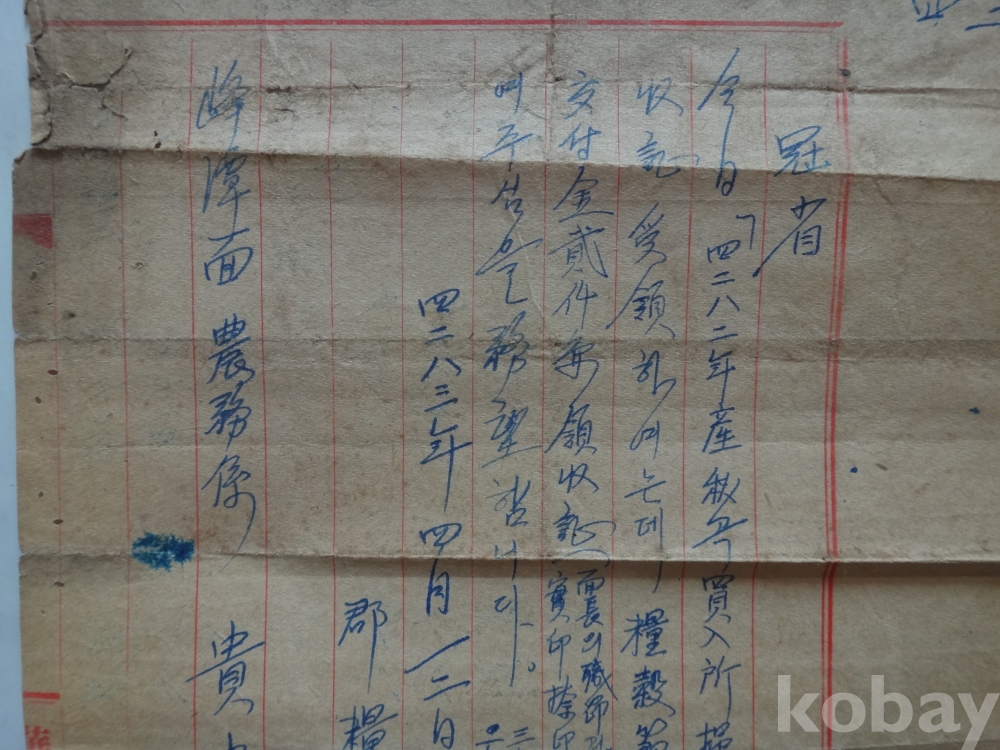 冠省
今日 「四二八二年産秋穀買入所
收記 受領하여는데 糧穀
交付金貳件 領收記(面長의職印과
實印捺印
여주심을務望합니다。
四二八三年 四月 一二日
郡糧
峰潭面 農務係 貴
kobay